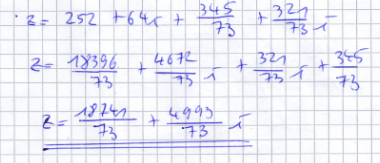 z = 252 + 64i + 345/73 + 321/73 i
z = 18396/73 + 4672/73 i + 321/73 i + 345/73
z = 18741/73 + 4993/73 i